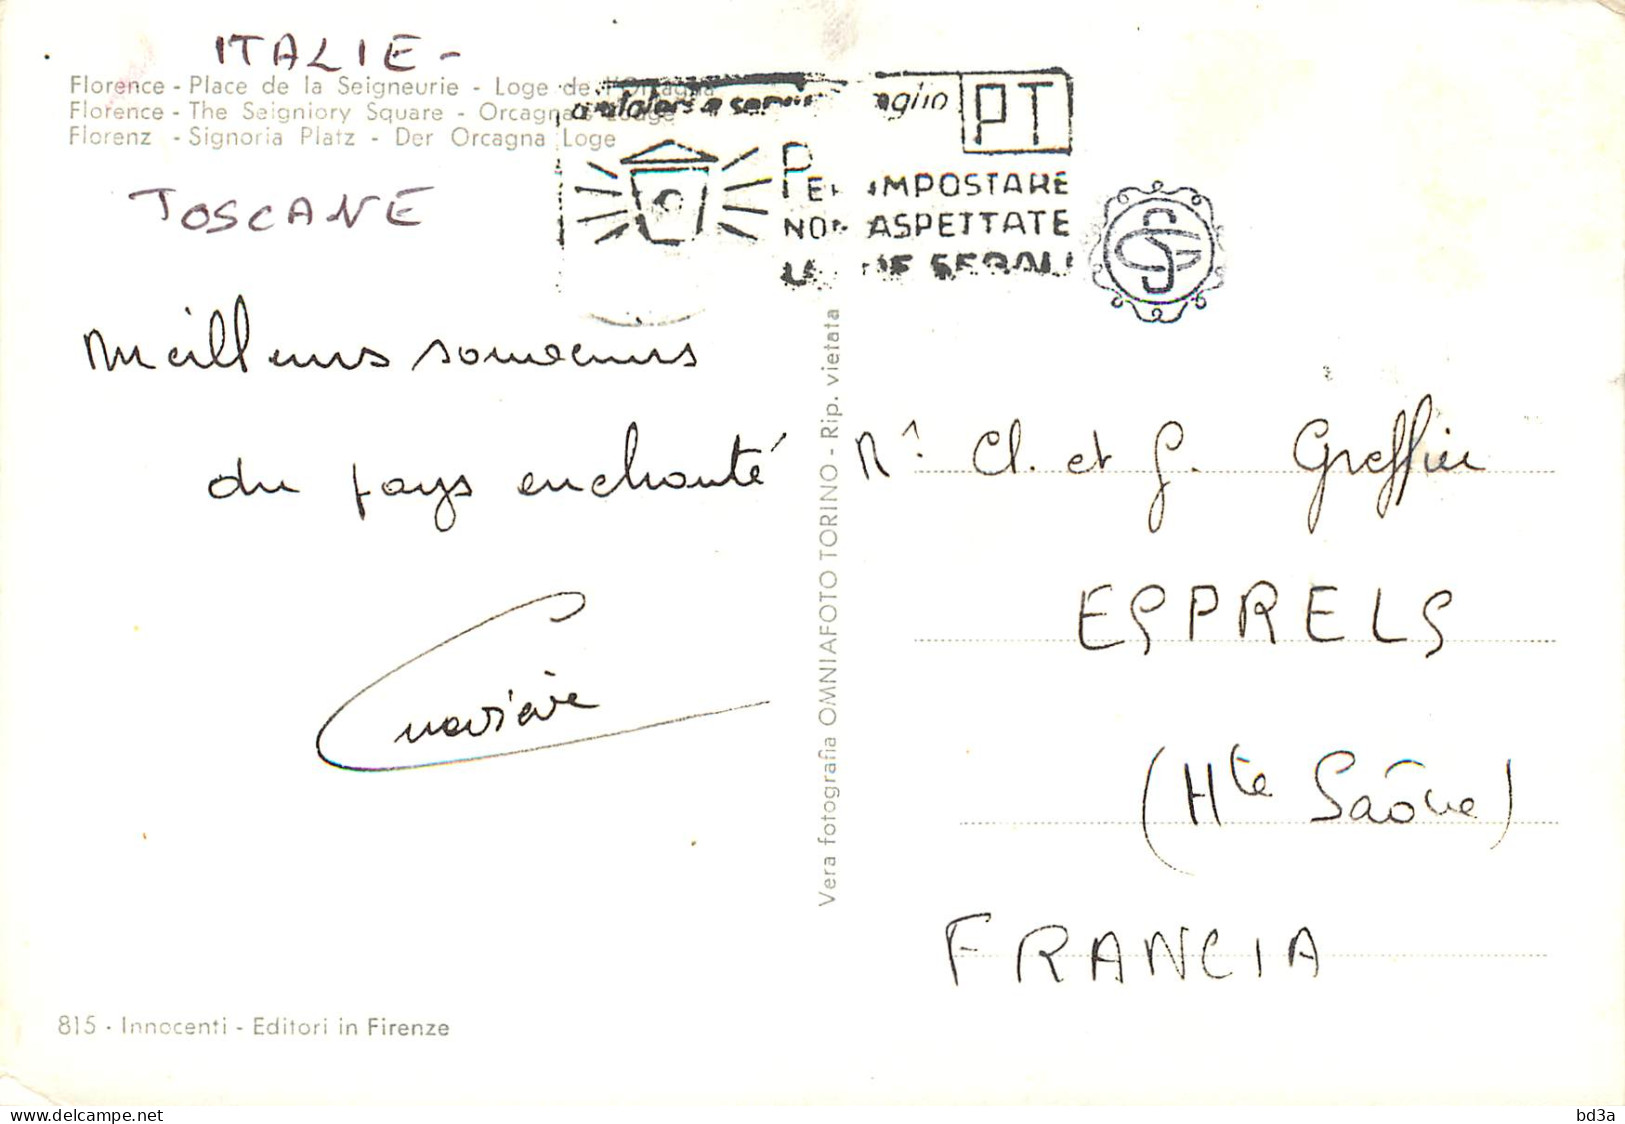 ITALIE -
Florence - Place de la Seigneurie - Loge de l'Orcagna
Florence - The Seigniory Square - Orcagna's Lodge
Florenz - Signoria Platz - Der Orcagna Loge
TOSCANE
aiutatersi a servirvi meglio
PT
PER IMPOSTARE
NON ASPETTATE
SERALI
Meilleurs souvenirs
du pays enchanté
Vera fotografia OMNIAFOTO TORINO - Rip. vietata
Mr. Cl. et G. Greffier
ESPRELS
(Hte Saône)
FRANCIA
815 - Innocenti - Editori in Firenze
www.delcampe.net
bd3a